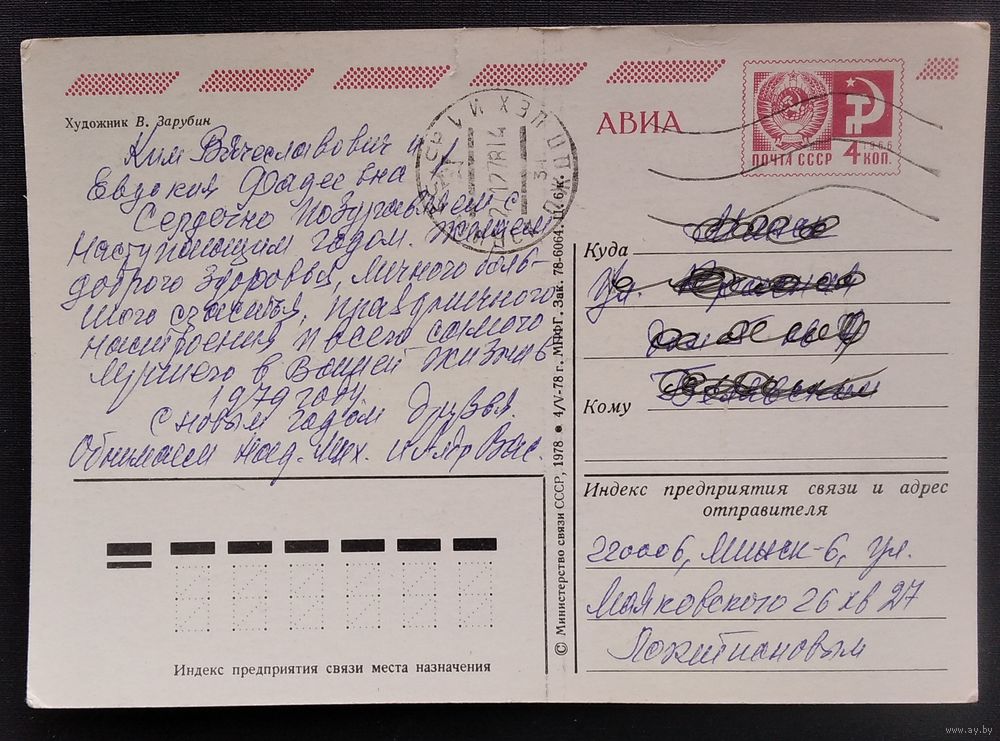 Художник В. Зарубин
Ким Вячеславович и
Евдокия Фадеевна
Сердечно поздравляем с
наступающим годом. Желаем
доброго здоровья, личного боль-
шого счастья, праздничного
настроения и всего самого
лучшего в Вашей жизни в
1979 году
С новым годом друзья.
Обнимаем Над. Мих. и Алдр Вас.
Индекс предприятия связи места назначения
© Министерство связи СССР, 1978 ● 4/V-78 г. МПФГ. Зак. 78-6064. Ц. 6 к.
АВИА
ПОЧТА СССР 4 КОП.
1966
Куда Минск
Ул.
Кому
Индекс предприятия связи и адрес
отправителя
220006, Минск-6, ул.
Маяковского 26 кв 27
www.ay.by